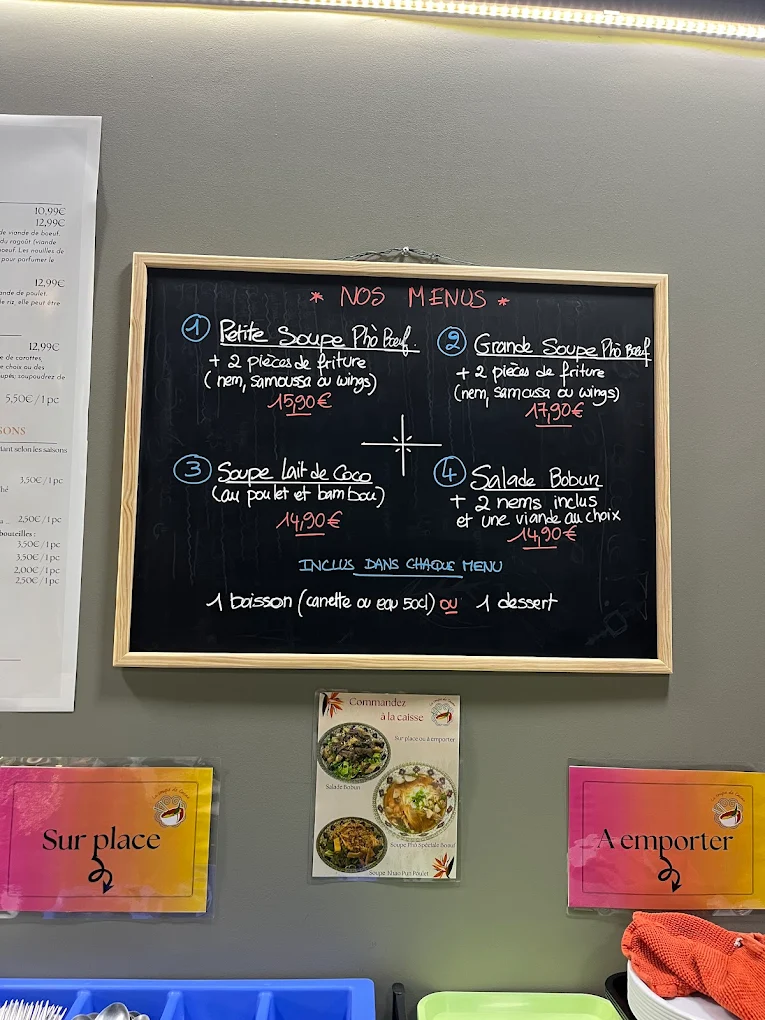 10,99€
12,99€
de viande de boeuf,
du ragoût (viande
boeuf. Les nouilles de
pour parfumer le
12,99€
ande de poulet,
de riz, elle peut être
12,99€
e de carottes,
e choix ou des
upés, soupoudrez de
5,50€/1pc
SONS
tant selon les saisons
3,50€/1pc
2,50€/1pc
bouteilles :
3,50€/1pc
3,50€/1pc
2,00€/1pc
2,50€/1pc
* NOS MENUS *
1 Petite Soupe Phò Bœuf
+ 2 pièces de friture
(nem, samoussa ou wings)
15,90€
2 Grande Soupe Phò Bœuf
+ 2 pièces de friture
(nem, samoussa ou wings)
17,90€
3 Soupe Lait de Coco
(au poulet et bambou)
14,90€
4 Salade Bobun
+ 2 nems inclus
et une viande au choix
14,90€
INCLUS DANS CHAQUE MENU
1 boisson (canette ou eau 50cl) ou 1 dessert
Commandez
à la caisse
Sur place ou à emporter
Salade Bobun
Soupe Phô Spéciale Boeuf
Soupe Khao Pun Poulet
Sur place
A emporter